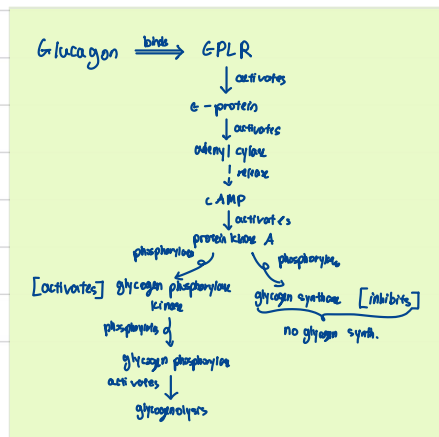 Glucagon binds GPLR
activates
G-protein
activates
adenyl cylase
release
cAMP
activates
protein kinase A
phosphorylates phosphorylates
[activates] glycogen phosphorylase glycogen synthase [inhibits]
kinase
no glycogen synth.
phosphorylates
glycogen phosphorylase
activates
glycogenolysis